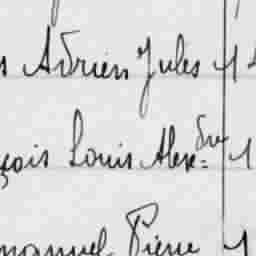 s Adrien Jules 4
çois Louis Alex^dre 1
manuel Pierre 4